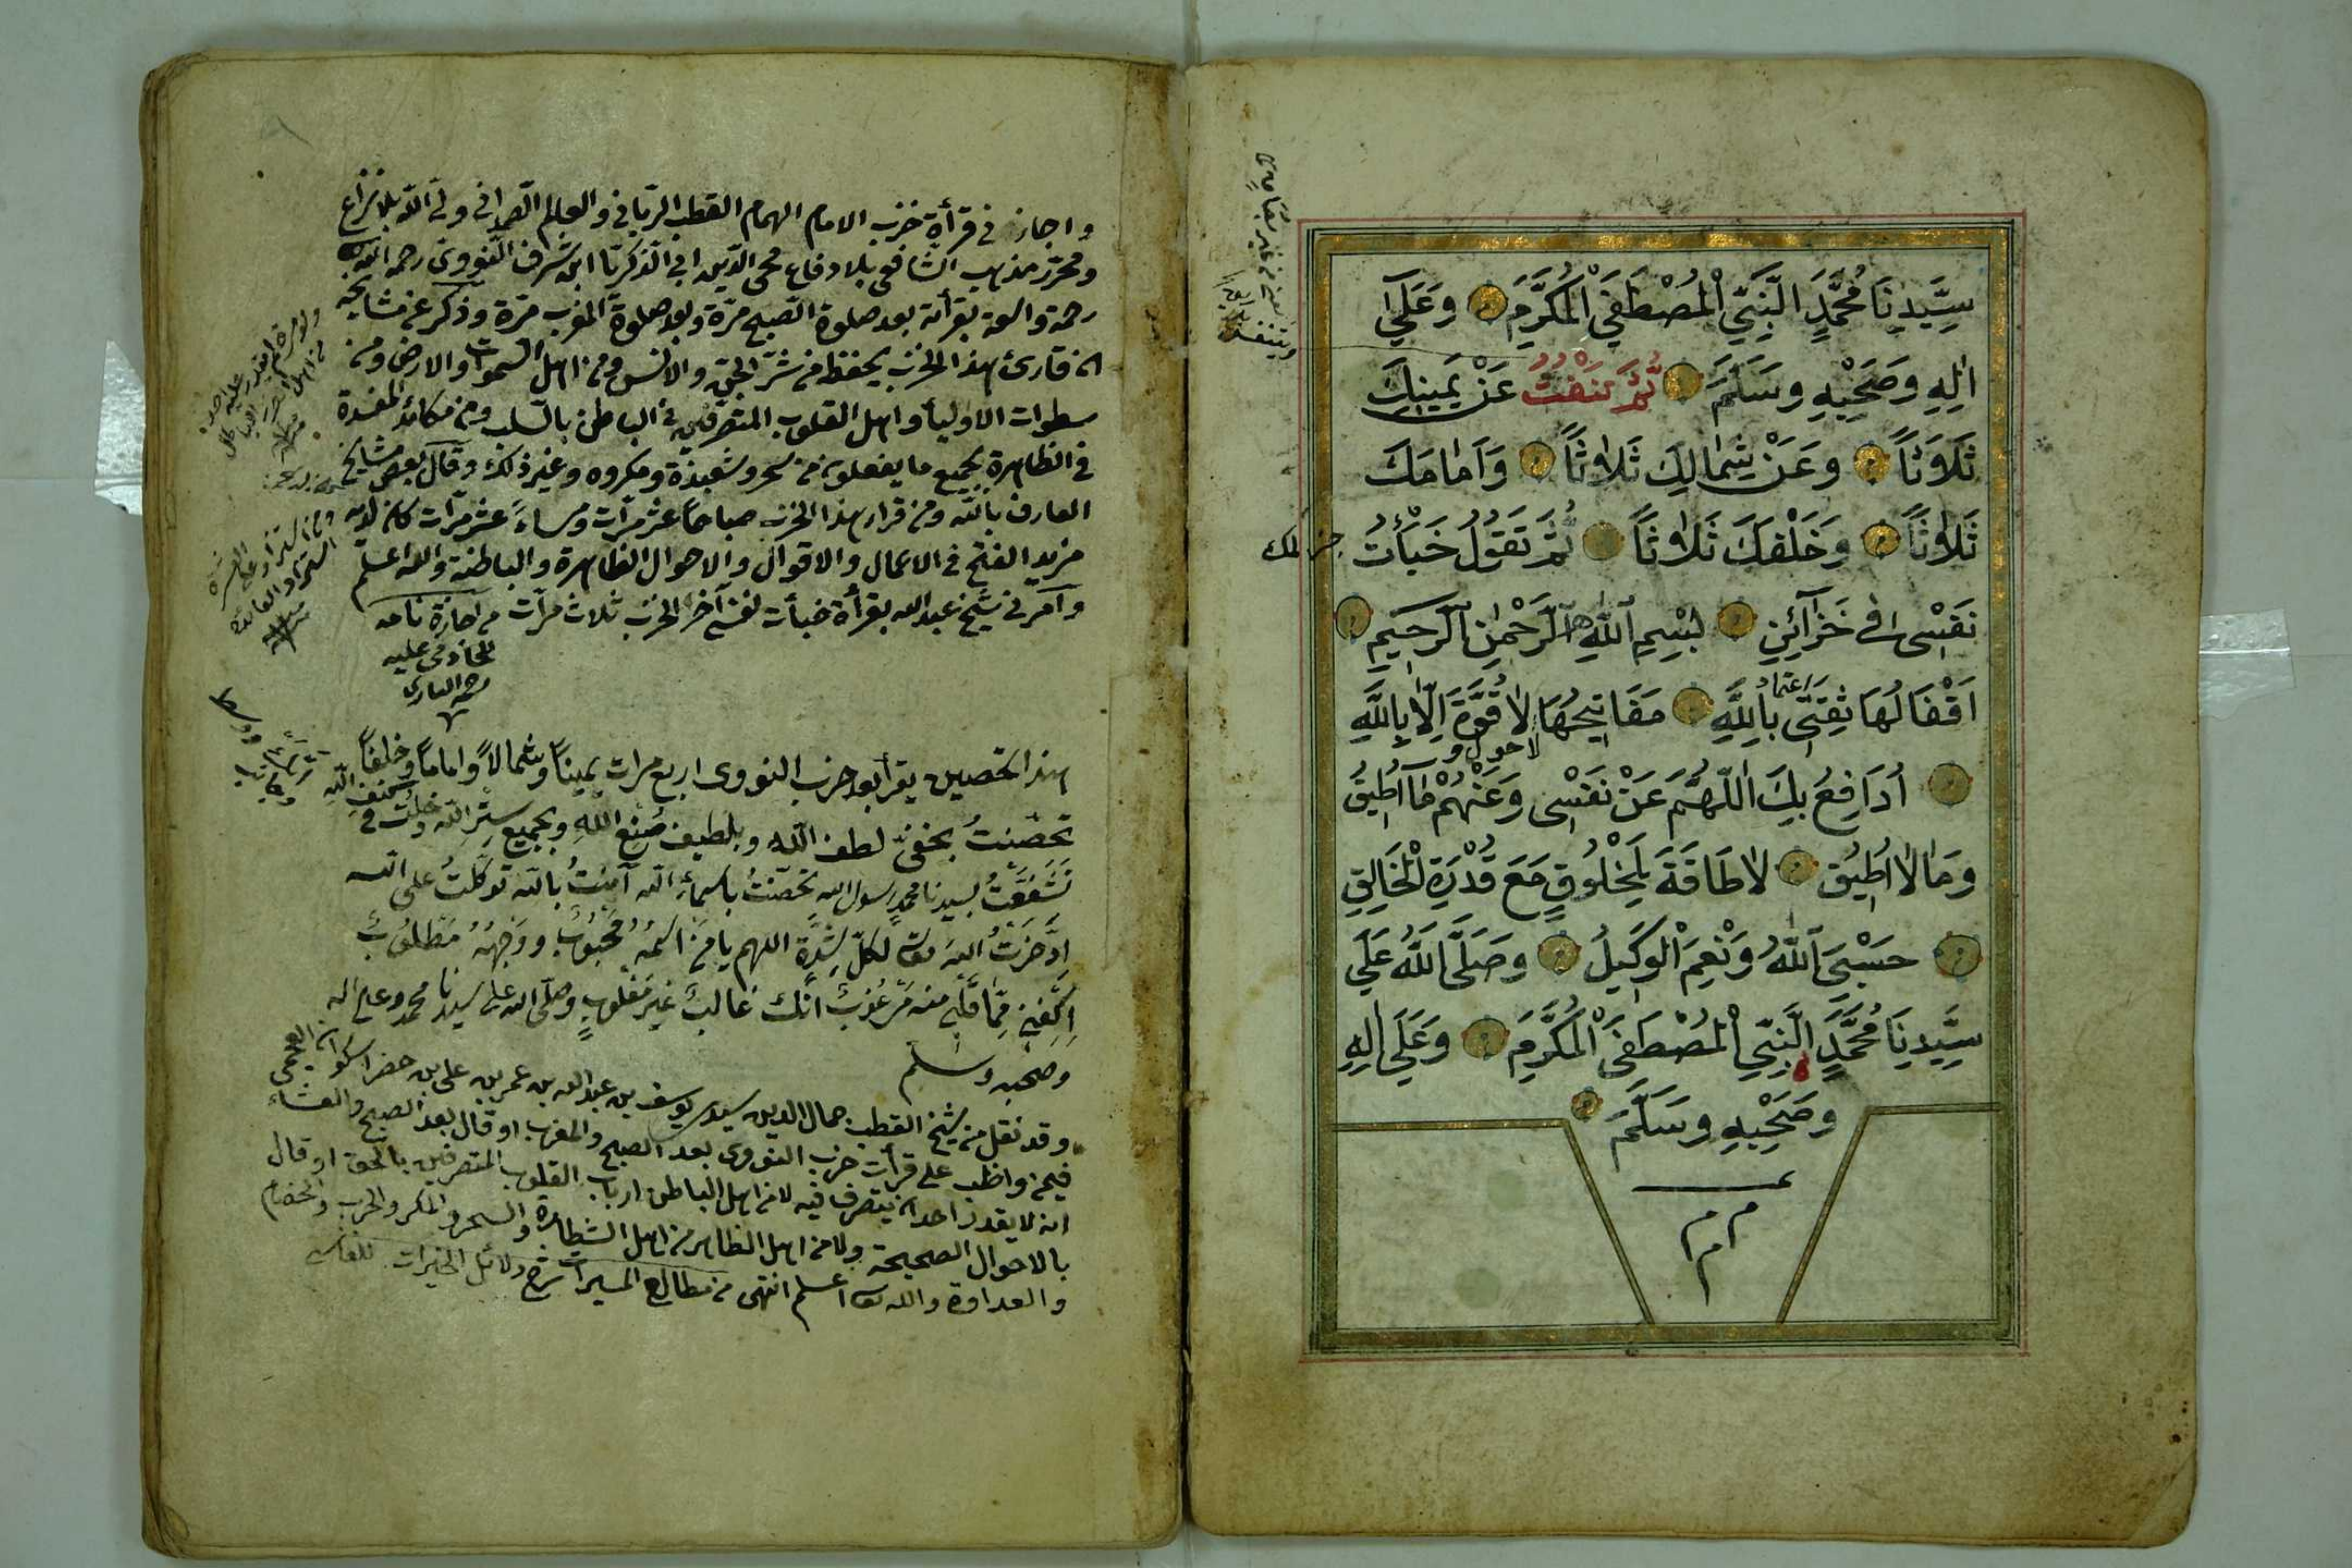 سَيِّدِنَا مُحَمَّدٍ النَّبِيِّ الْمُصْطَفَي الْمُكَرَّمِ وَعَلَي
اٰلِهِ وَصَحْبِهِ وَسَلَّمَ ثُمَّ تَنْفُثُ عَنْ يَمِينِكَ
ثَلَاوَثاً وَعَنْ شِمَالِكَ ثَلَاوثاً وَاَمَامَكَ
ثَلَاوثاً وَخَلْفَكَ ثَلَاوثاً ثُمَّ تَقُولُ خَبَأْتُ
نَفْسِى فِى خَزَآئِنِ بِسْمِ اللّٰهِ الرَّحْمٰنِ الرَّحِيمِ
اَقْفَالُهَا ثِقَتِى بِاللّٰهِ مَفَاتِيحُهَا لَا قُوَّةَ اِلَّا بِاللّٰهِ
لاحول و
اُدَافِعُ بِكَ اللّٰهُمَّ عَنْ نَفْسِى وَعَنْهُمْ مَا اُطِيقُ
وَمَا لَا اُطِيقُ لَا طَاقَةَ لِمَخْلُوقٍ مَعَ قُدْرَةِ الْخَالِقِ
حَسْبِيَ اللّٰهُ وَنِعْمَ الْوَكِيلُ وَصَلَّى اللّٰهُ عَلَي
سَيِّدِنَا مُحَمَّدٍ النَّبِيِّ الْمُصْطَفَي الْمُكَرَّمِ وَعَلَي اٰلِهِ
وَصَحْبِهِ وَسَلَّمَ
م م م
واجازنى فى قرأة حزب الامام الهمام القطب الربانى والعالم الصمدانى ولى الله بلا نزاع
ومحرر مذهب الشافعى بلا دفاع محى الدين ابى الذكريا ابن شرف النووى رحمه الله
رحمة واسعة بقرأته بعد صلوة الصبح مرة وبعد صلوة المغرب مرة وذكر عن مشايخه
ان قارئ هذا الحزب يحفظ من شر الجن والانس ومن اهل السموات والارض ومن
سطوات الاوليأ واهل القلوب المتصرفين فى الباطن بالسلب ومن مكائد المفسدة
فى الظاهرة بجميع ما يفعلون من سحر وشعبذة ومكروه وغير ذلك وقال بعض مشايخى
العارف بالله ومن قرأ هذا الحزب صباحاً عشر مرات ومساءً عشر مرات كان لديه
مزيد الفتح فى الاعمال والاقوال والاحوال الظاهرة والباطنة والله اعلم
وآمرنى شيخ عبد الله بقرأة خبأت نفسى آخر الحزب ثلاث مرات من اجازة نامه
عليه
رحمة البارى
هذا التحصين يقرأ بعد حزب النووى اربع مرات يميناً وشمالاً واماماً وخلفاً
تحصنتُ بخفىّ لطف الله وبلطيف صُنع اللّهِ وبجميع سترِ الله ودخلتُ فى كنفِ اللهِ
تشفعتُ بسيدنا محمدٍ رسول الله تحصنتُ باسماءِ الله آمنتُ بالله توكلتُ على الله
ادّخرتُ اللهَ لكلّ شدّة اللهم يا من اسمُهُ محبُوبٌ ووجهُهُ مَطلُوبٌ
اِكْفِنى ممّا قلبى منه مرعُوبٌ انّك غالبٌ غير مغلوبٍ وصلّى الله على سيدنا محمد وعلى اله
وصحبه وسلم
وقد نقل من شيخ القطب جمال الدين سيدى يوسف بن عبد الله بن عمر بن على بن خضر
فيمن واظب على قرأت حزب النووى بعد الصبح والمغرب او قال بعد الصبح والعشاء
انه لا يقدر احد ان يتصرف فيه لا من اهل الباطن ارباب القلوب المتصرفين بالحق او قال
بالاحوال الصحيحة ولا من اهل الظاهر من اهل الشطارة والسحر والمكر والحرب والخصام
والعداوة والله اعلم انتهى من مطالع المسيرات شرح دلائل الخيرات للفاسى